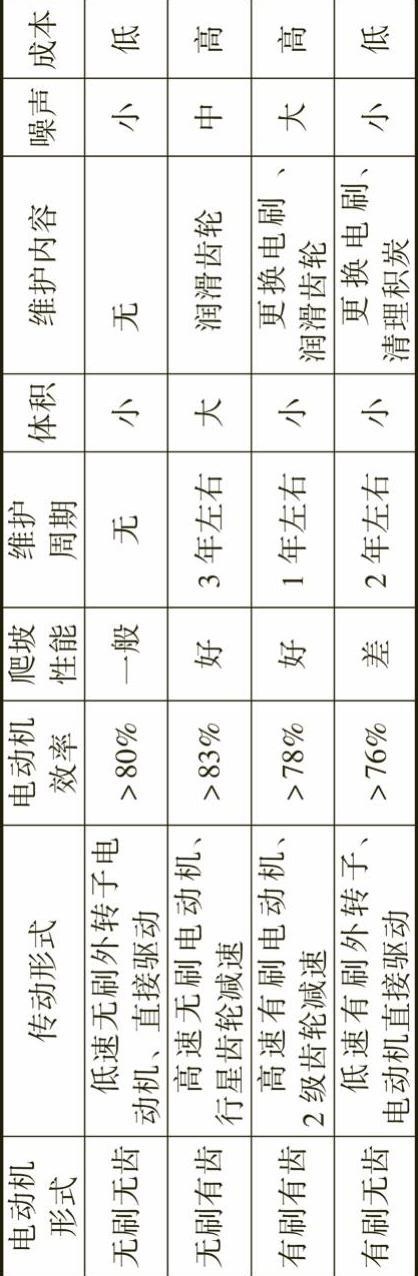 电动机
形式
传动形式
电动机
效率
爬坡
性能
维护
周期
体积
维护内容
噪声
成本
无刷无齿
低速无刷外转子电
动机、直接驱动
>80%
一般
无
小
无
小
低
无刷有齿
高速无刷电动机、
行星齿轮减速
>83%
好
3 年左右
大
润滑齿轮
中
高
有刷有齿
高速有刷电动机、
2 级齿轮减速
>78%
好
1 年左右
小
更换电刷、
润滑齿轮
大
高
有刷无齿
低速有刷外转子、
电动机直接驱动
>76%
差
2 年左右
小
更换电刷、
清理积炭
小
低